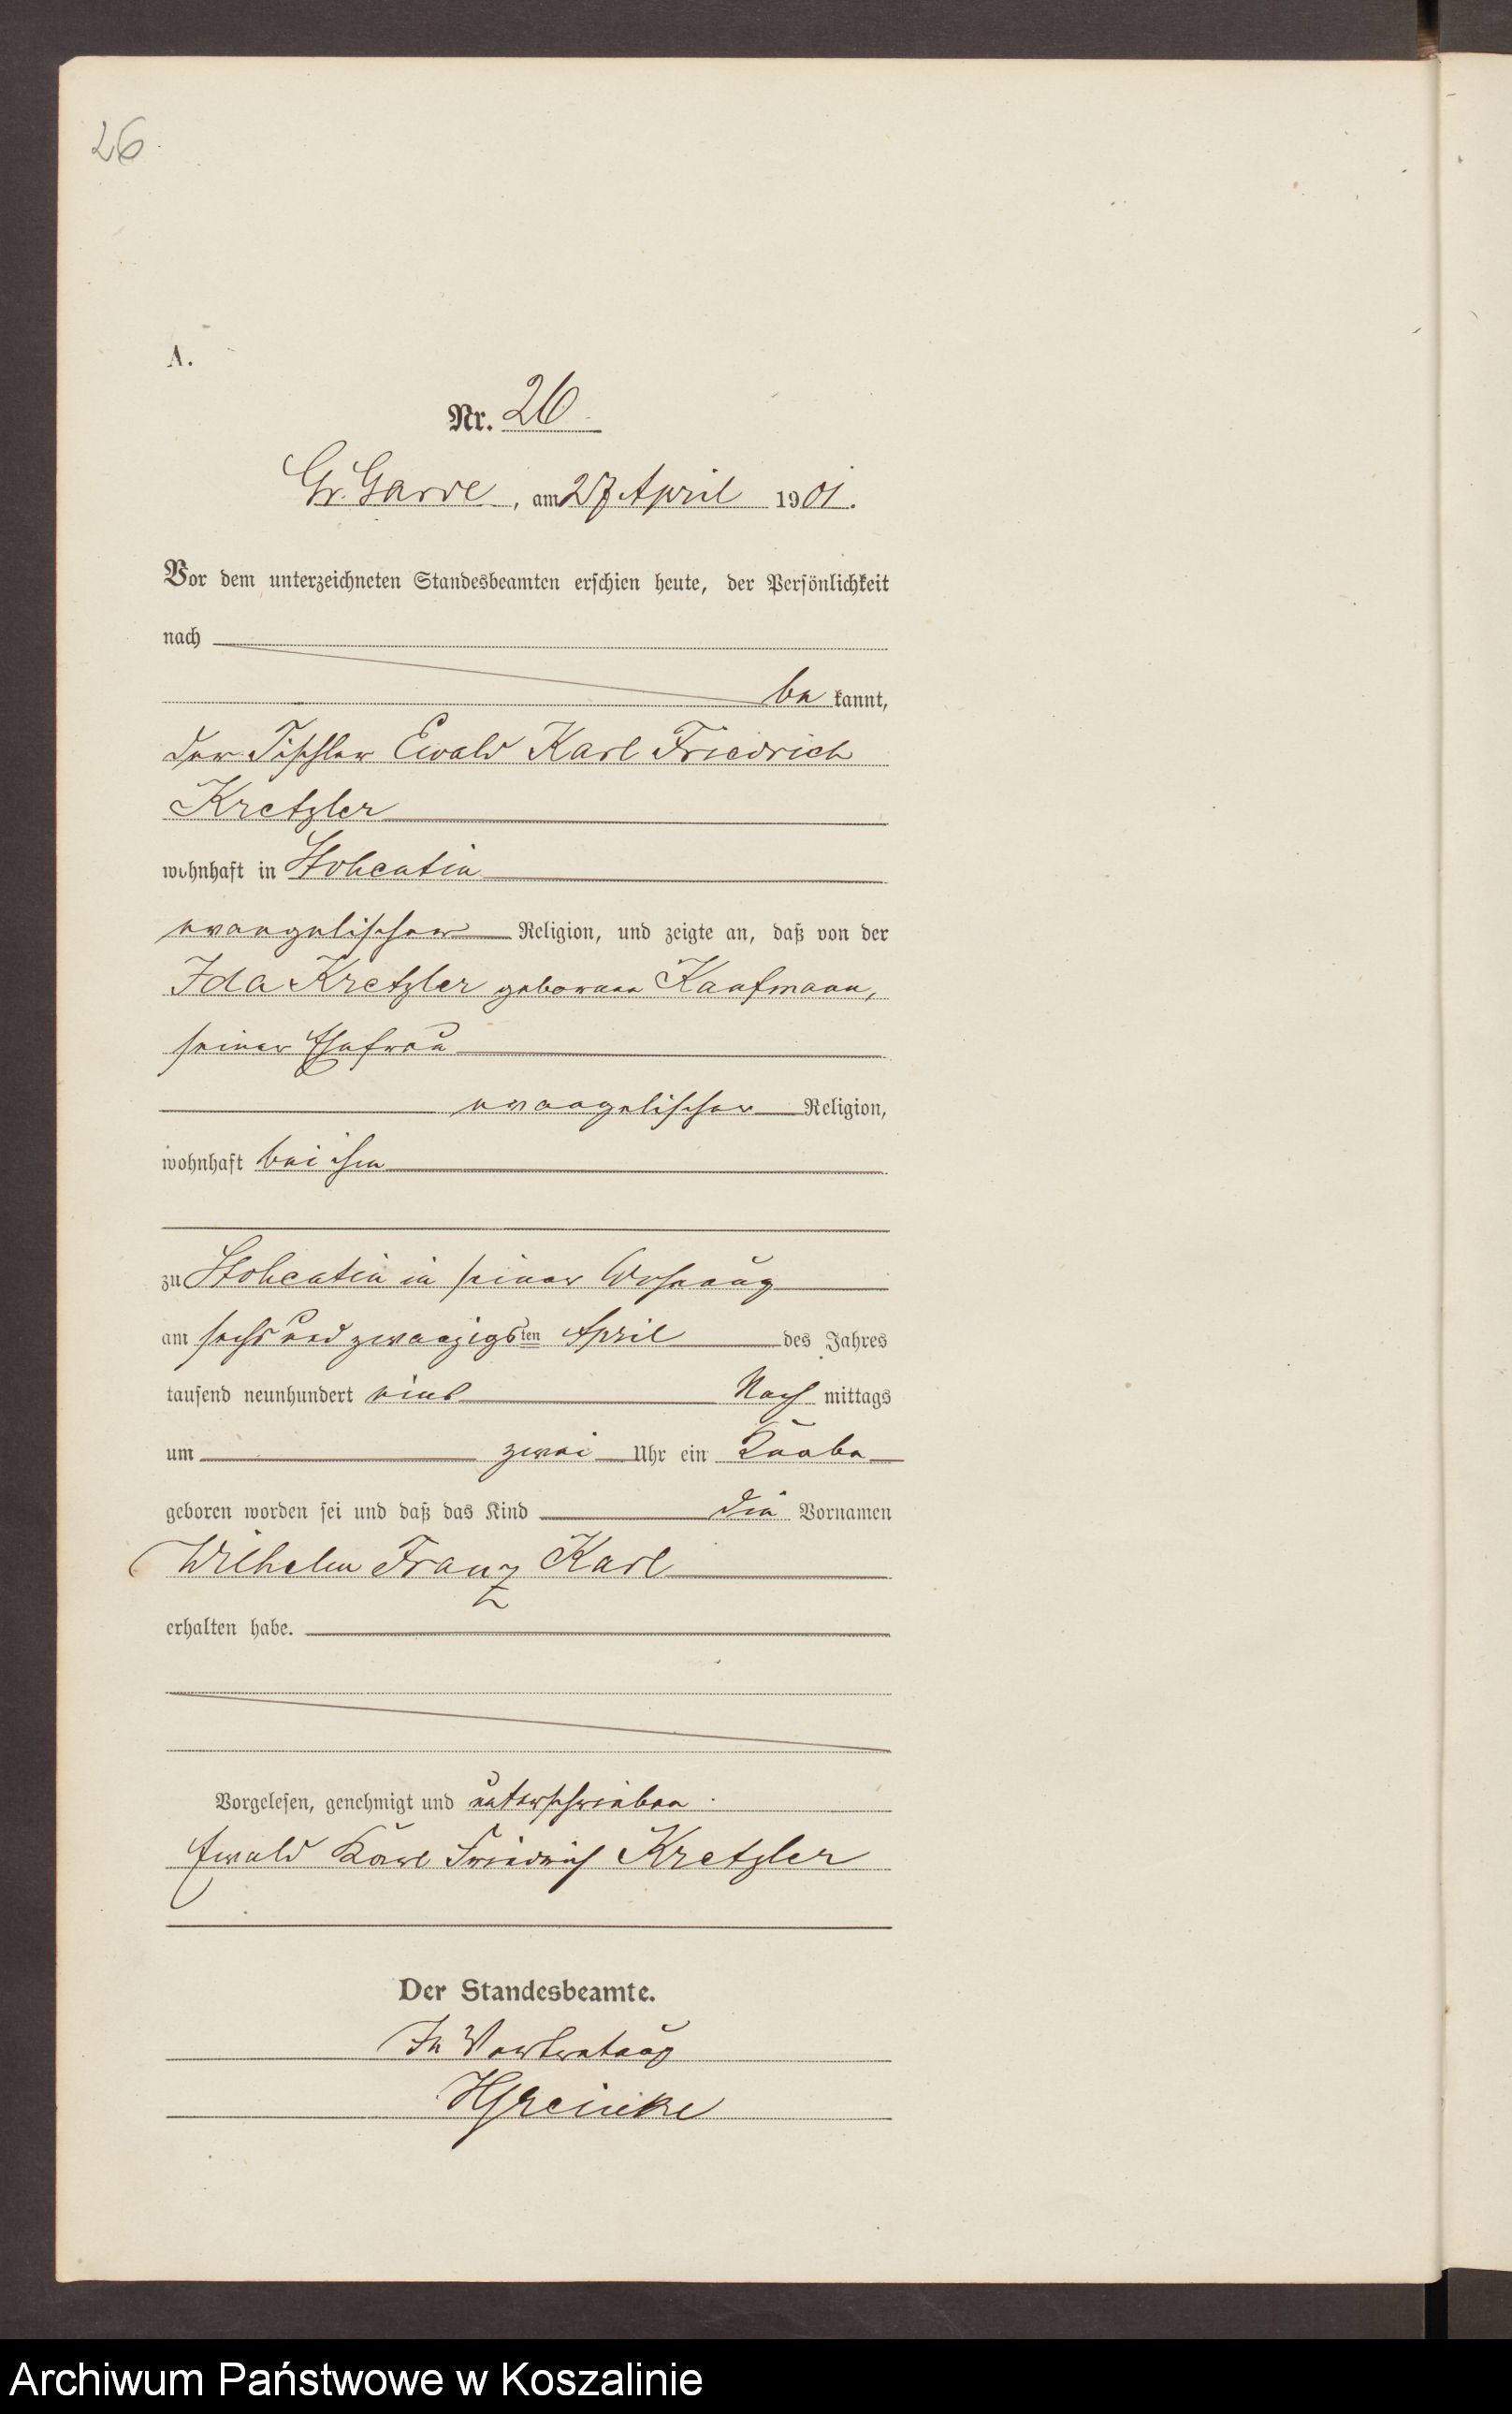 26
A.
Nr. 26.
Gr. Garde, am 27 April 1901.
Vor dem unterzeichneten Standesbeamten erschien heute, der Persönlichkeit
nach
be kannt,
der Tischler Ewald Karl Friedrich
Kretzler
wohnhaft in Stohentin
evangelischer Religion, und zeigte an, daß von der
Ida Kretzler geborenen Kaufmann,
seiner Ehefrau
evangelischer Religion,
wohnhaft bei ihm
zu Stohentin in seiner Wohnung
am sechs und zwanzigsten April des Jahres
tausend neunhundert eins Nach mittags
um zwei Uhr ein Knabe
geboren worden sei und daß das Kind die Vornamen
Wilhelm Franz Karl
erhalten habe.
Vorgelesen, genehmigt und unterschrieben.
Ewald Karl Friedrich Kretzler
Der Standesbeamte.
In Vertretung
Archiwum Państwowe w Koszalinie